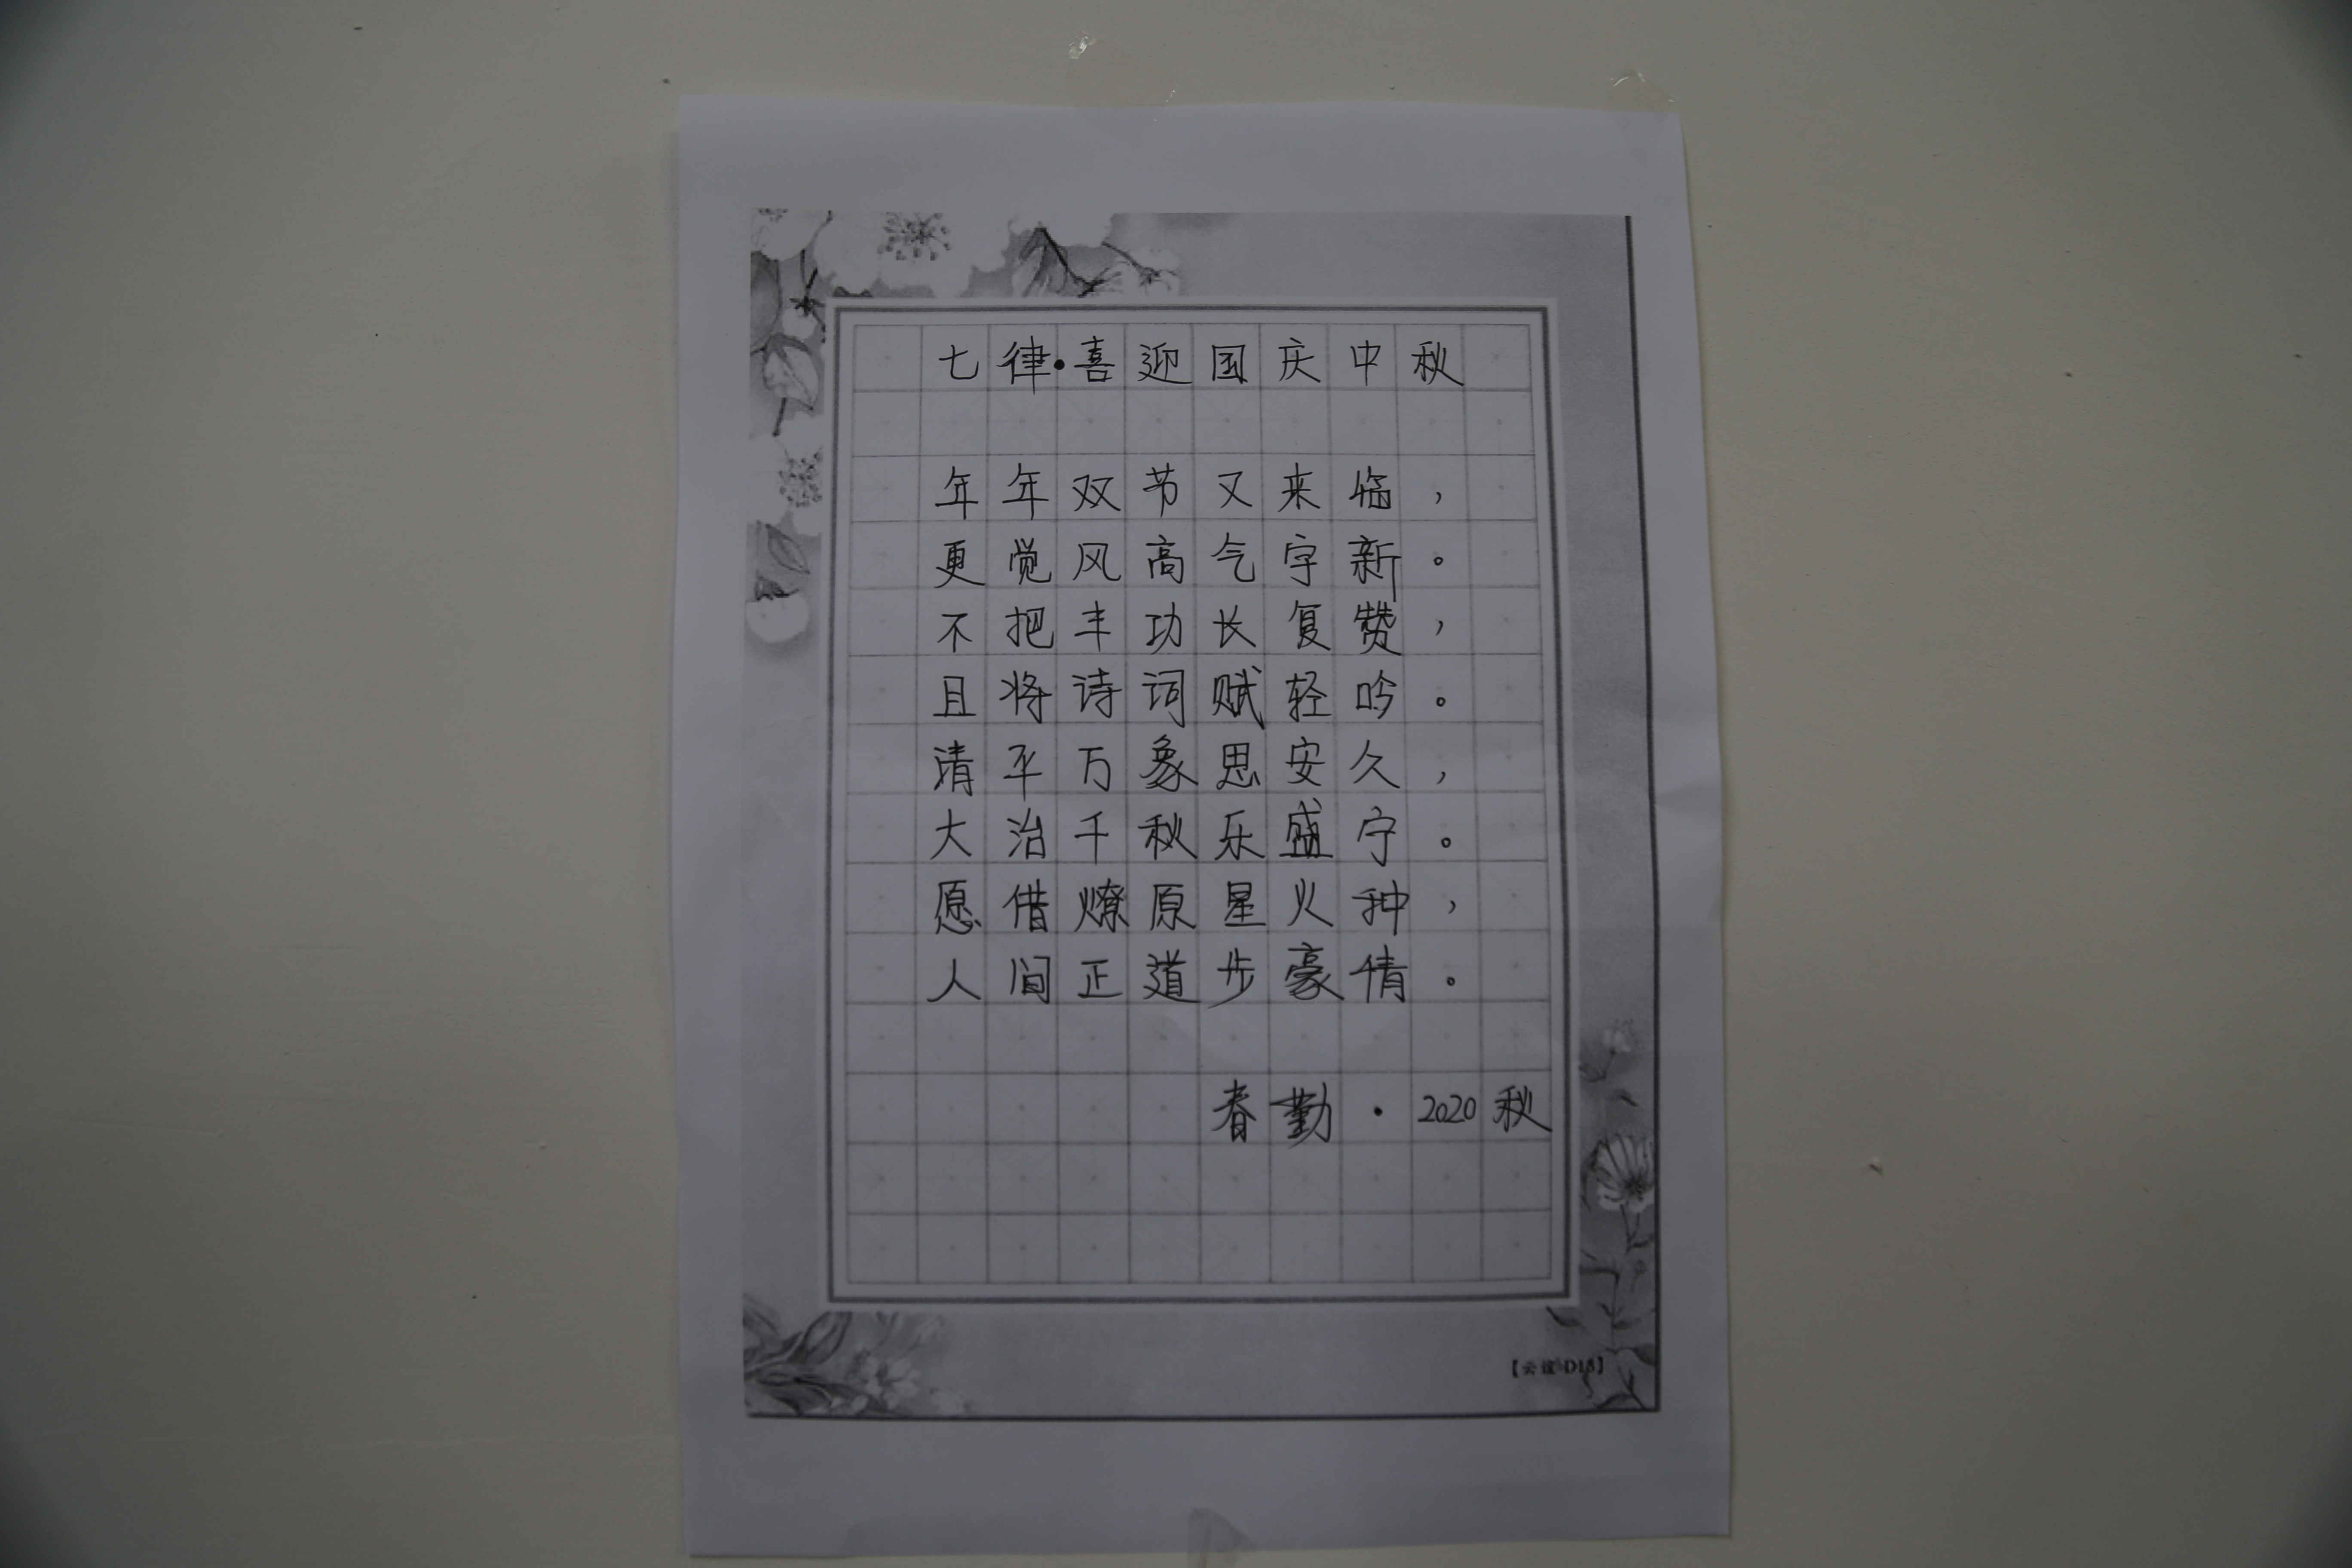 七律·喜迎国庆中秋
年年双节又来临，
更觉风高气字新。
不把丰功长复赞，
且将诗词赋轻吟。
清平万象思安久，
大治千秋乐盛宁。
愿借燎原星火种，
人间正道步豪情。
春勤·2020秋